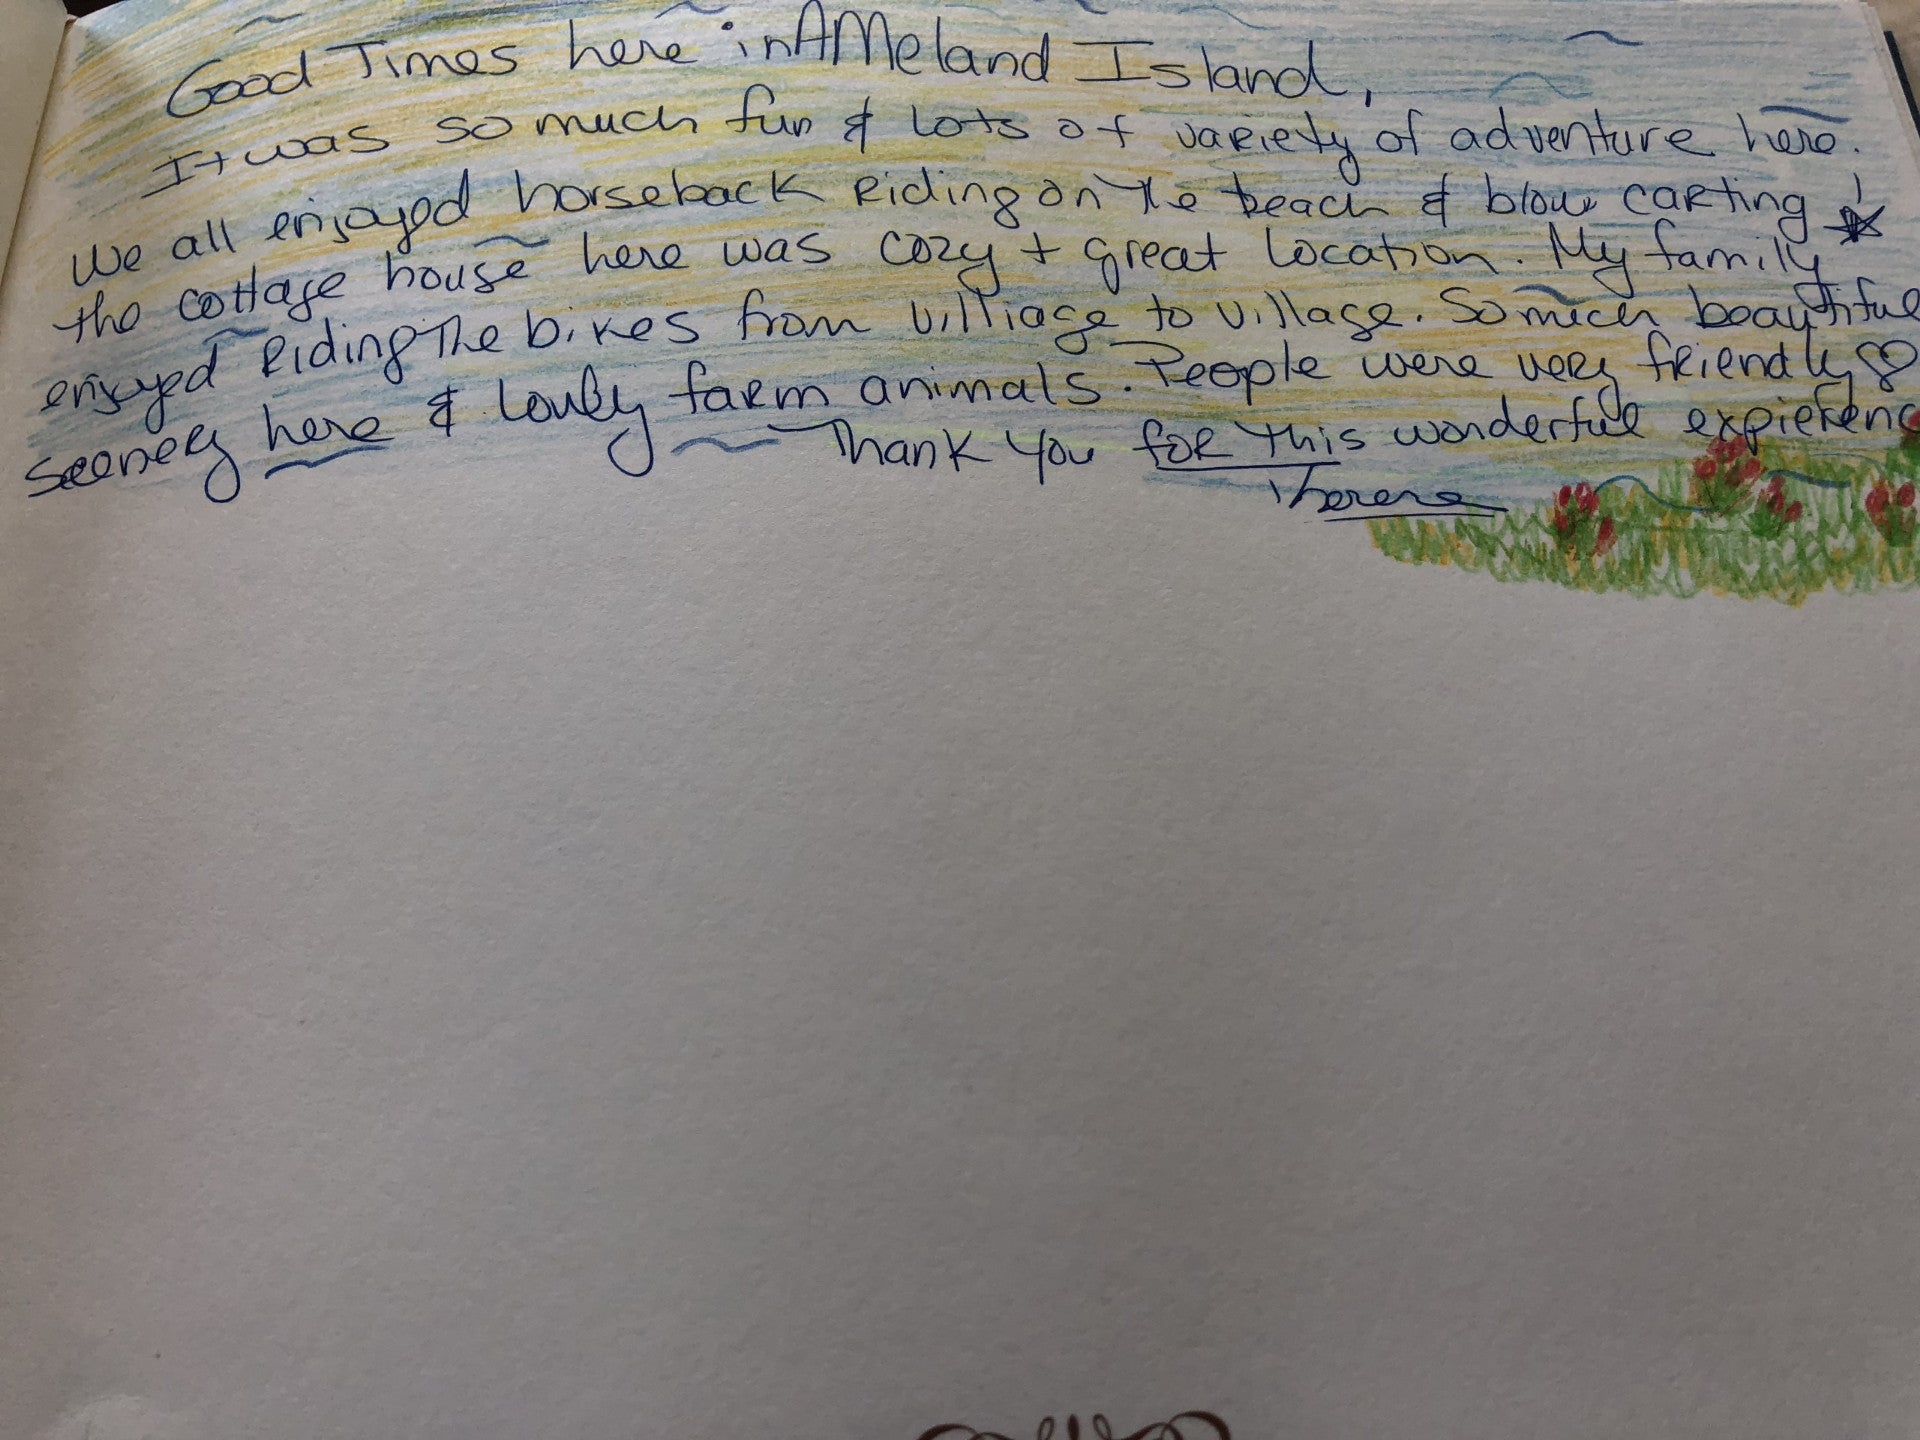 Good Times here in AMeland Island,
It was so much fun & lots of variety of adventure here.
We all enjoyed horseback Riding on The beach & blow carting!
the cottage house here was cozy + great location. My family
enjoyed Riding The bikes from villiage to village. So much beautiful
scenery here & lovely farm animals. People were very friendly
Thank you for this wonderful expierenc